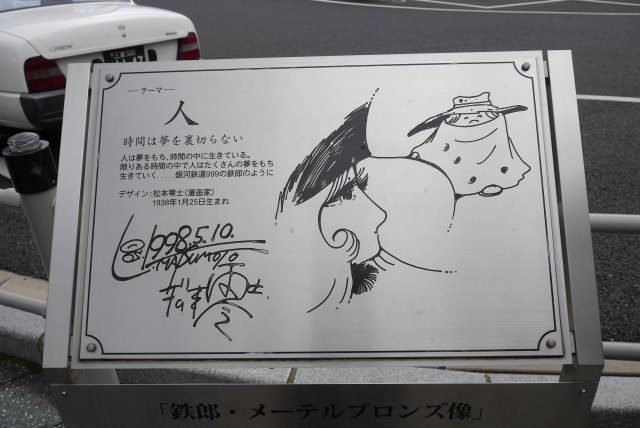 ―テーマ―
人
時間は夢を裏切らない
人は夢をもち、時間の中に生きている。
限りある時間の中で人はたくさんの夢をもち
生きていく.....銀河鉄道999の鉄郎のように
デザイン:松本零士(漫画家)
1938年1月25日生まれ
1998.5.10.
「鉄郎・メーテルブロンズ像」
CREW
三重500